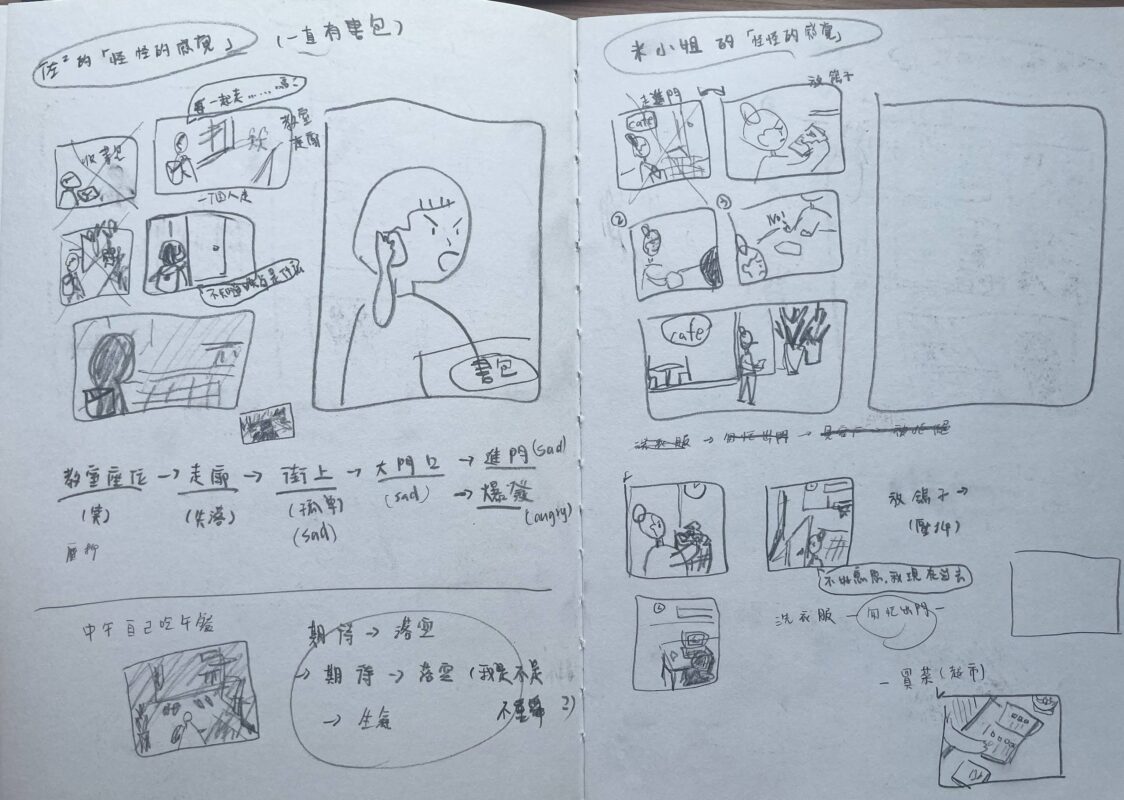 佐²的「怪怪的感覺」 (一直有書包)
要一起走......嗎?
教室
走廊
收書包
一個人走
書包
教室座位 → 走廊 → 街上 → 大門口 → 進門 (sad)
→ 爆發 (angry)
(笑) (失落) (孤單) (sad)
(sad)
壓抑
中午自己吃午餐
期待 → 落空
→ 期待 → 落空 (我是不是
不重要?)
→ 生氣
米小姐的「怪怪的感覺」
走進門
放鴿子
cafe
②
③
NO!
cafe
洗衣服 → 匆忙出門 →
放鴿子 →
(壓抑)
不好意思,我現在過去
洗衣服 — 匆忙出門 —
— 買菜 (超市)